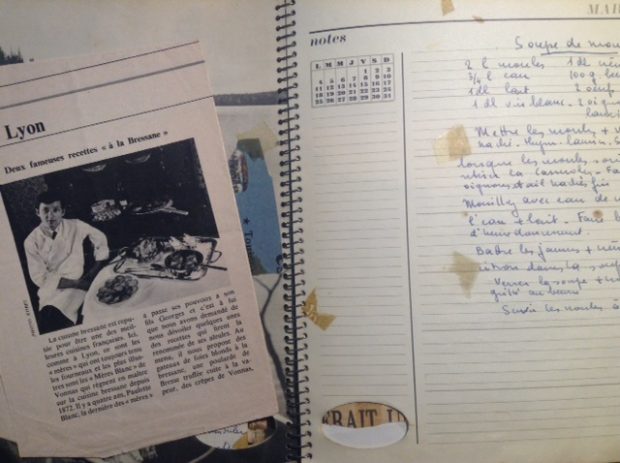 Lyon
Deux fameuses recettes « à la Bressane »
La cuisine bressane est répu-
tée pour être une des meil-
leures cuisines françaises. Ici,
comme à Lyon, ce sont les
« mères » qui ont toujours tenu
les fourneaux et les plus illus-
tres sont les « Mères Blanc » de
Vonnas qui règnent en maître
sur la cuisine bressane depuis
1872. Il y a quatre ans, Paulette
Blanc, la dernière des « mères »
a passé ses pouvoirs à son
fils Georges et c'est à lui
que nous avons demandé de
nous dévoiler quelques unes
des recettes qui firent la
renommée de ses aïeules. Au
menu, il nous propose des
gateaux de foies blonds à la
bressane, une poularde de
Bresse truffée cuite à la va-
peur, des crêpes de Vonnas.
notes
MAR
L M M J V S D
1 2 3
4 5 6 7 8 9 10
11 12 13 14 15 16 17
18 19 20 21 22 23 24
25 26 27 28 29 30 31
Soupe de mou
2 l moules 1 dl
3/4 l eau 100 g beu
1 dl lait 2 oeuf
1 dl vin blanc - 2 oign
Mettre les moules + v
haché. Thym. laurier.
lorsque les moules
oignons et ail hachés fin
Mouiller avec eau de
l'eau + lait. Faire
d'heure doucement.
Battre les jaunes +
dans la soup
Verser la soupe +
au beurre
Servir les moules à
TRAIT